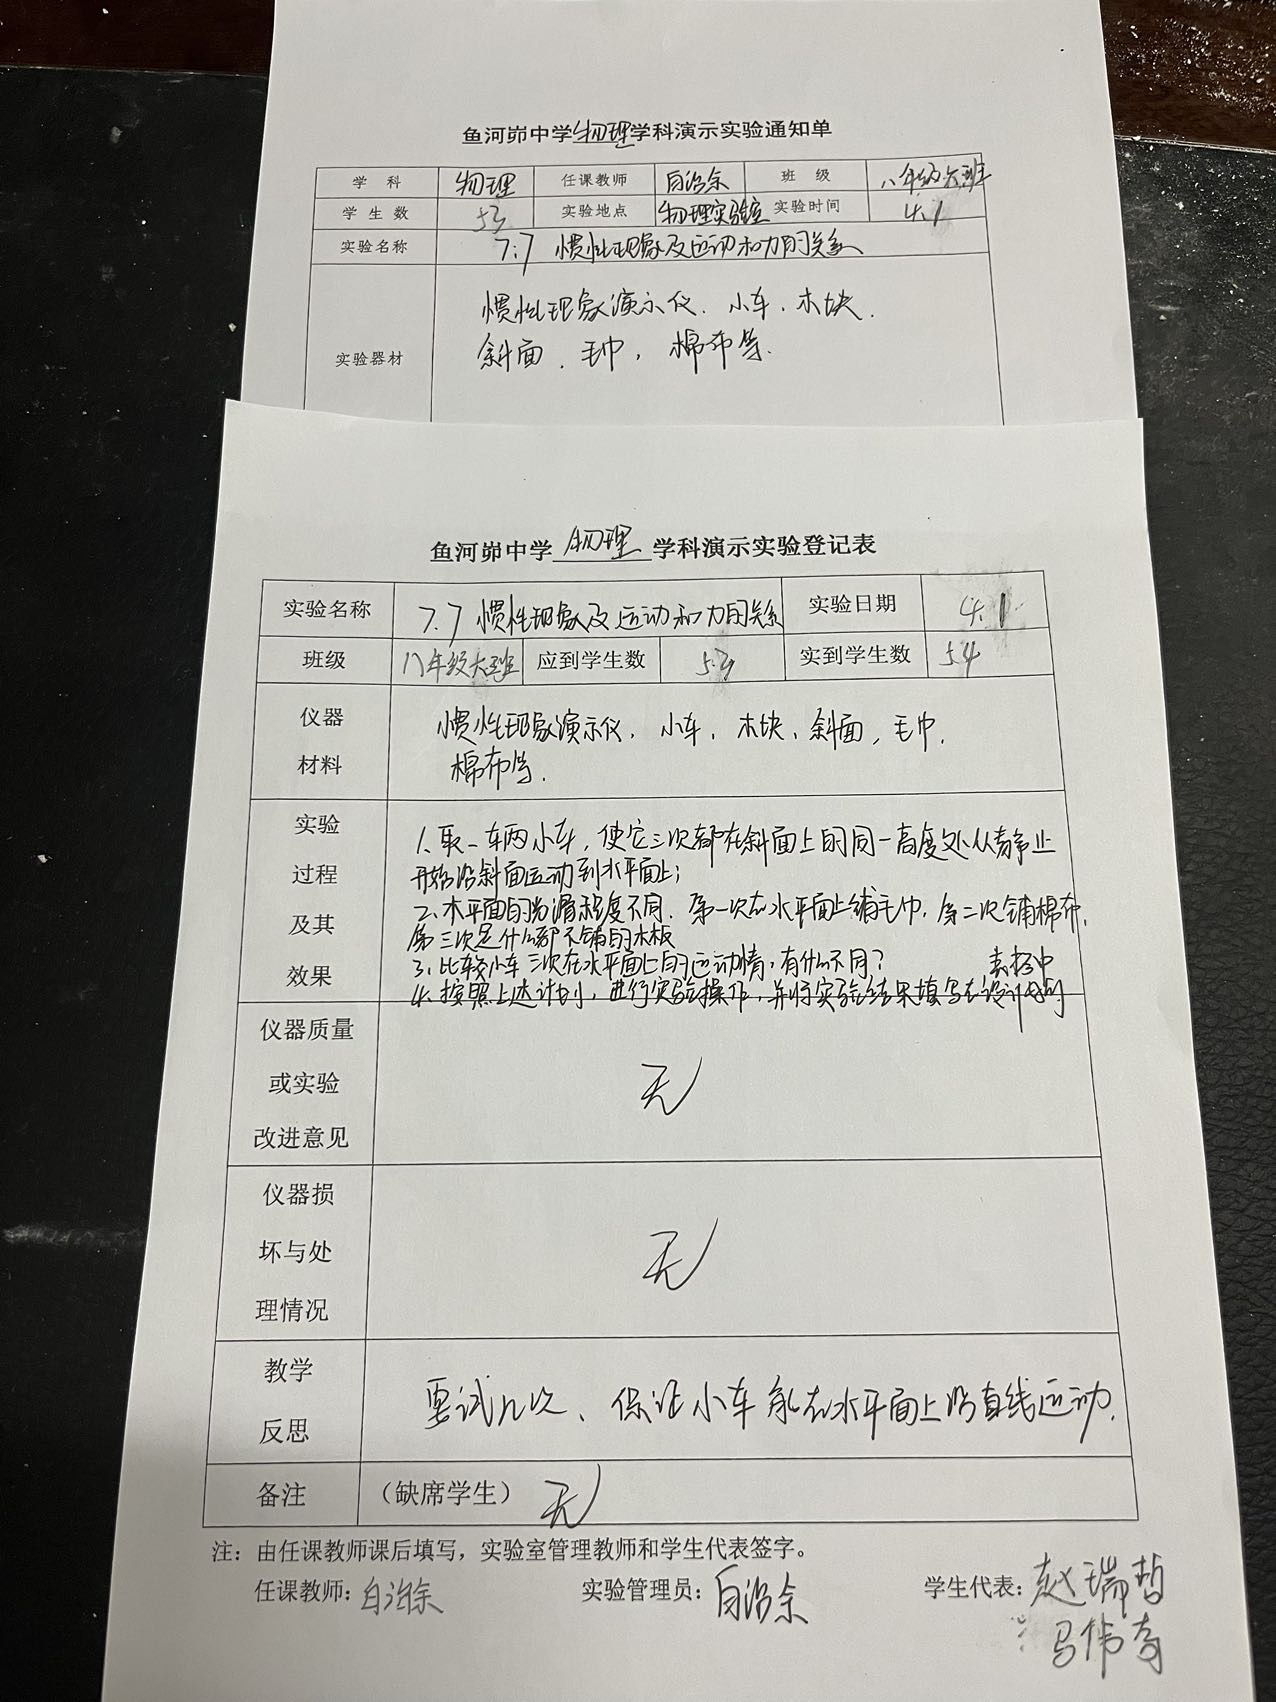 鱼河峁中学物理学科演示实验通知单
学 科 物理 任课教师 白治余 班 级 八年级大班
学 生 数 53 实验地点 物理实验室 实验时间 4.1
实验名称 7.7 惯性现象及运动和力的关系
惯性现象演示仪、小车、木块、
实验器材 斜面、毛巾,棉布等.
鱼河峁中学 物理 学科演示实验登记表
实验名称 7.7 惯性现象及运动和力的关系 实验日期 4.1
班级 八年级大班 应到学生数 53 实到学生数 54
仪器 惯性现象演示仪、小车,木块、斜面,毛巾、
材料 棉布等.
实验
过程
及其
效果
1、取一车两小车,使它三次都在斜面上的同一高度处从静止
开始沿斜面运动到水平面上;
2、水平面的光滑程度不同.第一次在水平面上铺毛巾,第二次铺棉布,
第三次是什么都不铺的木板
3、比较小车三次在水平面上的运动情,有什么不同?
4、按照上述计划,进行实验操作,并将实验结果填写在设计好的
表格中
仪器质量
或实验 无
改进意见
仪器损
坏与处 无
理情况
教学
反思
要试几次、保证小车能在水平面上沿直线运动.
备注 (缺席学生) 无
注:由任课教师课后填写,实验室管理教师和学生代表签字。
任课教师:白治余 实验管理员:白治余 学生代表:赵瑞哲
马伟